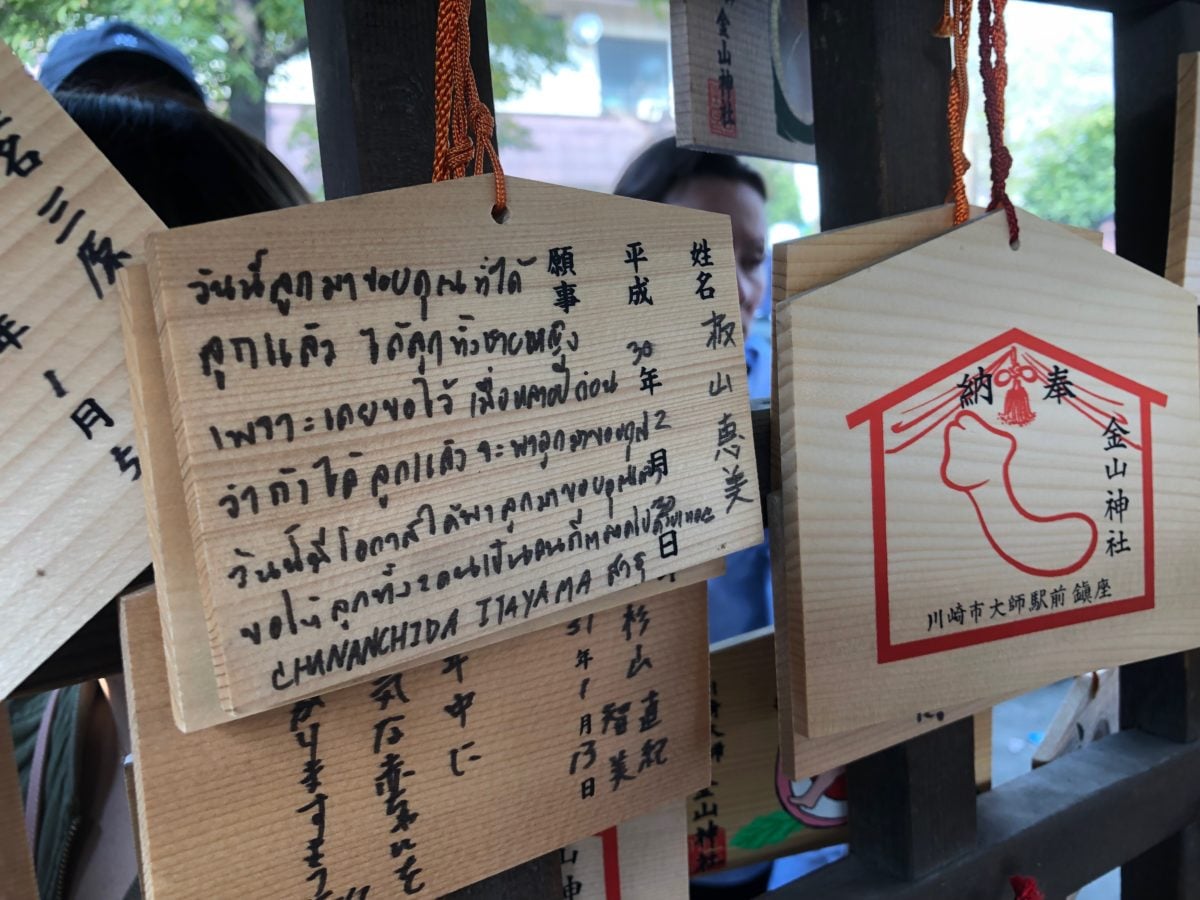 金山神社
名 三原
年
1月
姓名 板山恵美
平成 30年 2月 日
願事
วันนี้ลูกมาขอบคุณที่ได้
ลูกแล้ว ได้ลูกทั้งชายหญิง
เพราะเคยขอไว้ เมื่อหลายปีก่อน
ว่าถ้าได้ลูกแล้วจะพาลูกมาขอบคุณ
วันนี้มีโอกาสได้พาลูกมาขอบคุณแล้ว
ขอให้ลูกทั้ง 2 คนเป็นคนดีตลอดไปด้วยเทอญ
CHANANCHIDA ITAYAMA สาธุ
奉納
金山神社
川崎市大師駅前鎮座
杉山 直紀
智美
31年1月13日
年中に
元気な赤ちゃんを
かりますように
金山神社
山神